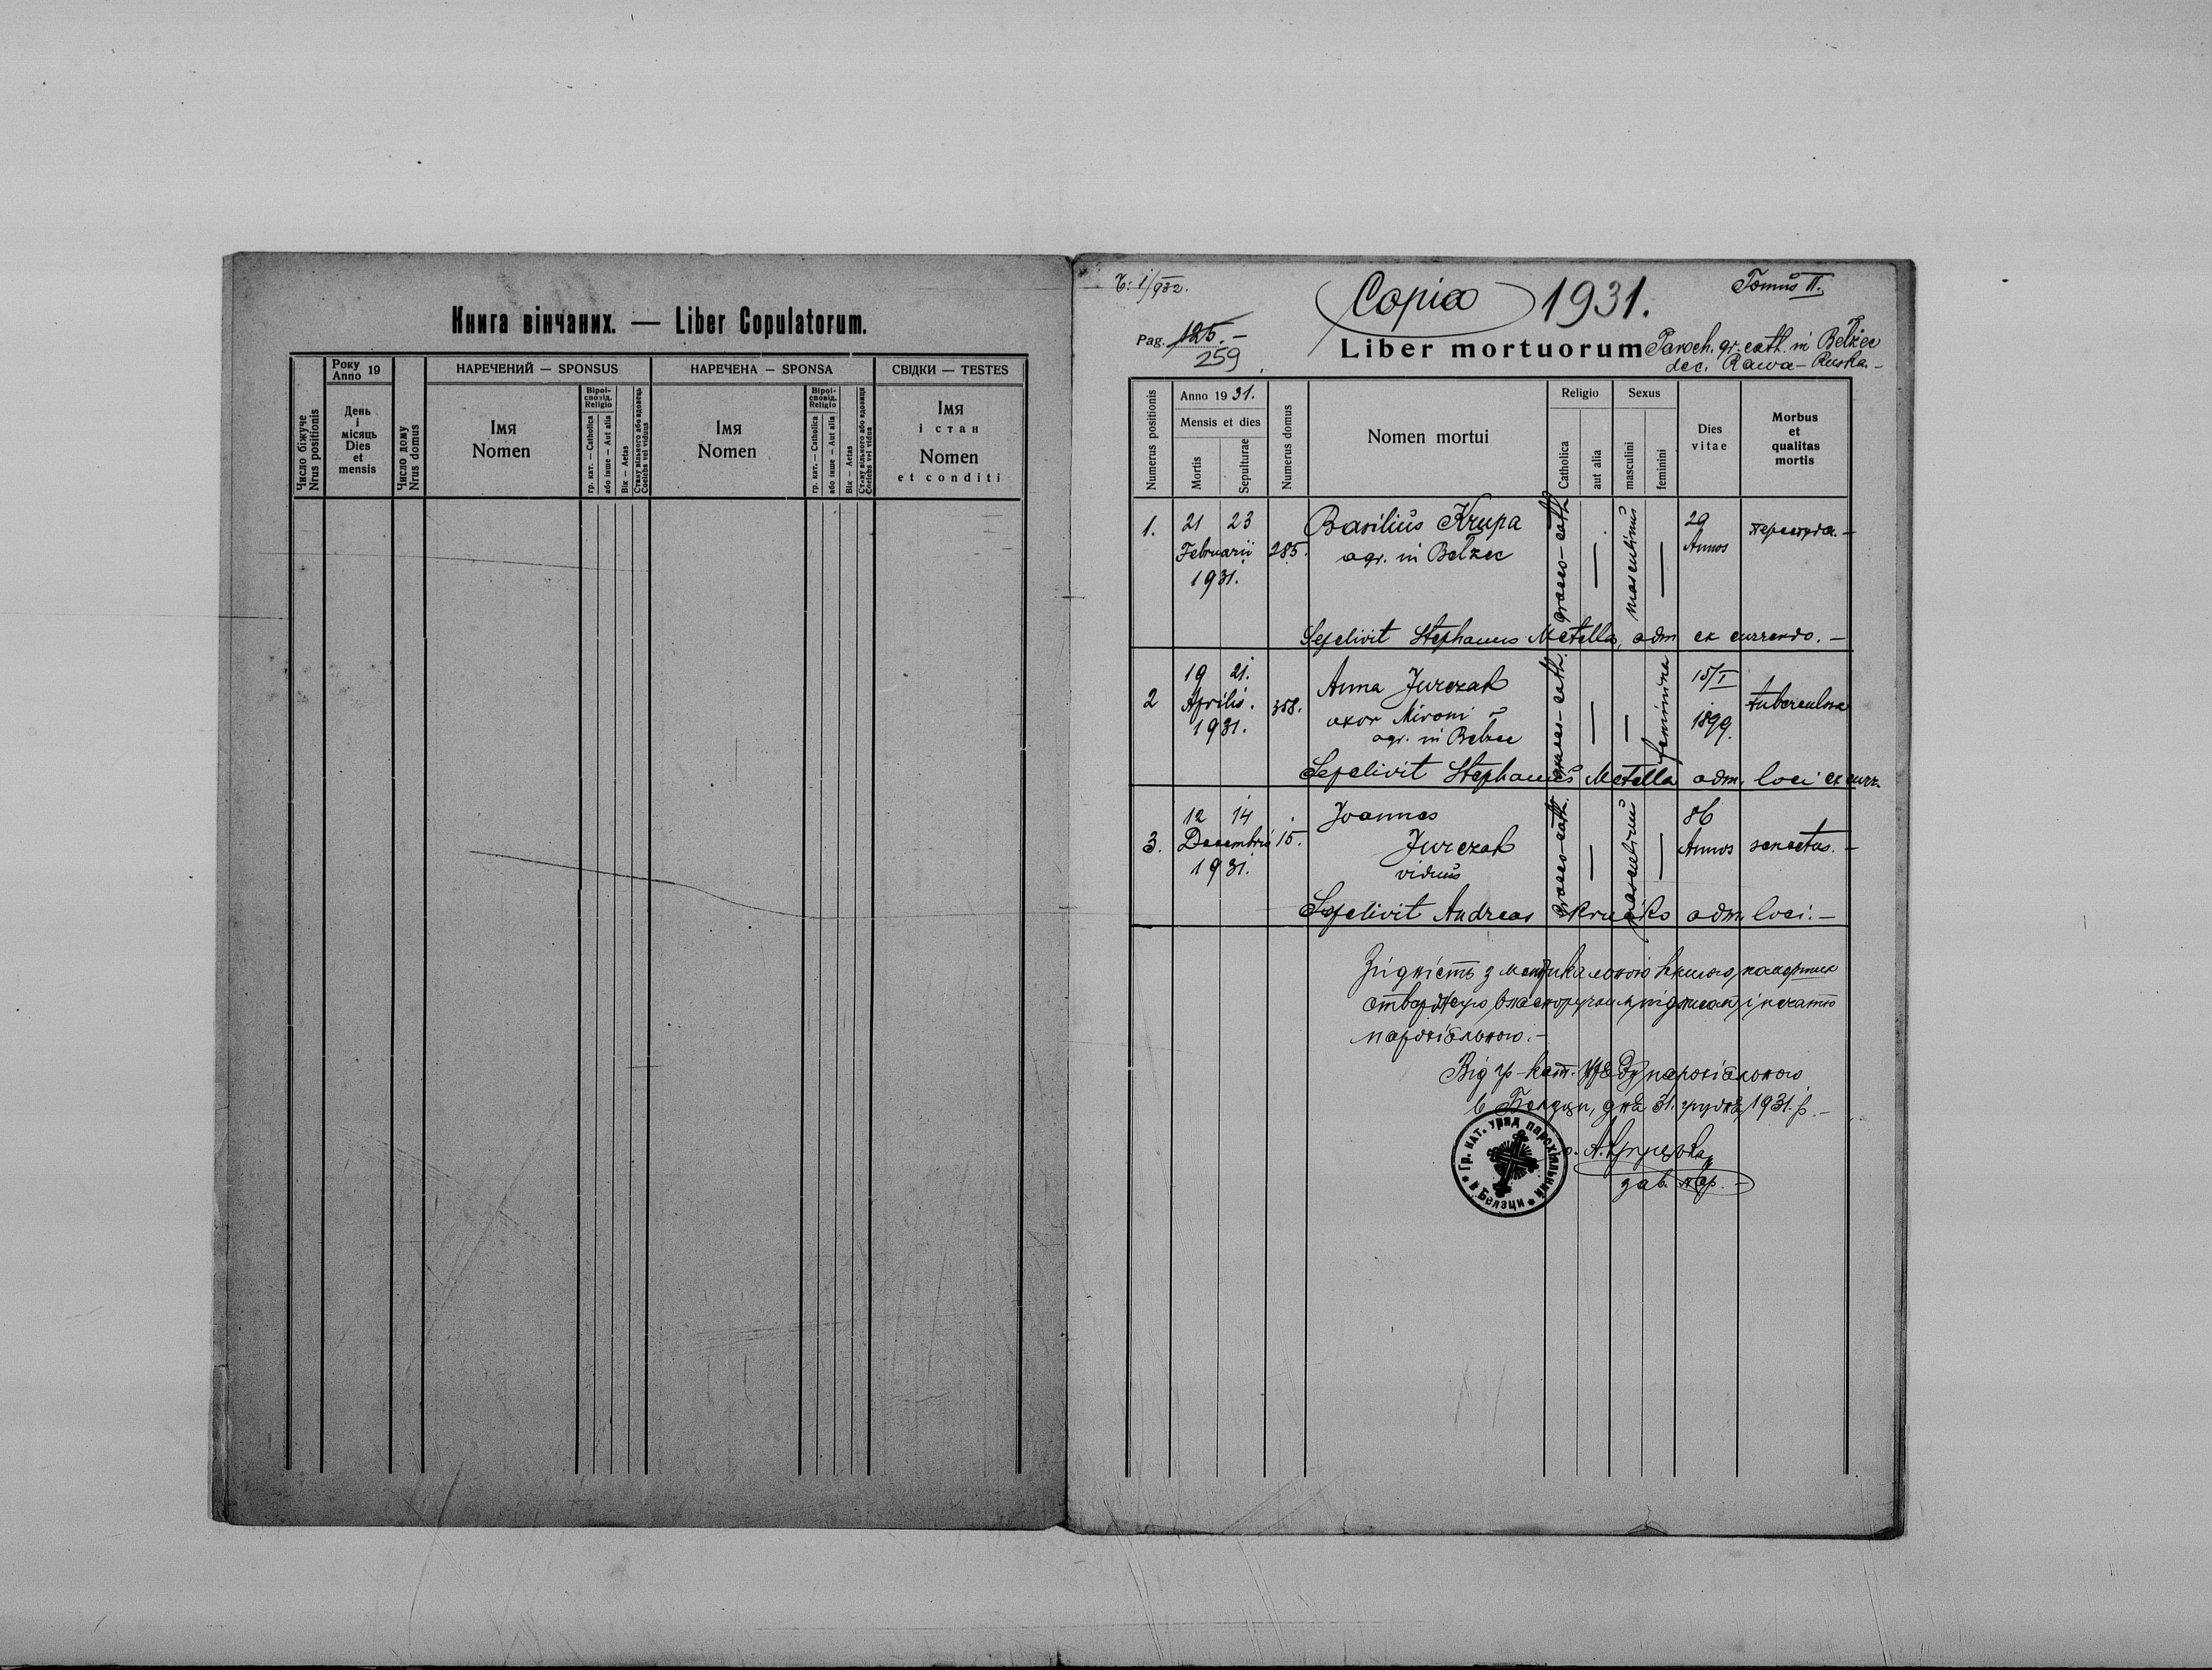 Книга вінчаних. — Liber Copulatorum.
Число біжуче
Nrus positionis
Року
Anno 19
День
і
місяць
Dies
et
mensis
Число дому
Nrus domus
НАРЕЧЕНИЙ — SPONSUS
Імя
Nomen
Віроі-
сповід.
Religio
гр. кат. — Catholica
або інше — Aut alia
Вік — Aetas
Стану вільного або вдовець
Coelebs vel viduus
НАРЕЧЕНА — SPONSA
Імя
Nomen
Віроі-
сповід.
Religio
гр. кат. — Catholica
або інше — Aut alia
Вік — Aetas
Стану вільного або вдовиця
Coelebs vel vidua
СВІДКИ — TESTES
Імя
і стан
Nomen
et conditi
Ч: 1/932.
Copia 1931.
Tomus II.
Pag. 185.-
259
Liber mortuorum Paroch. gr. cath. in Bełżec
dec. Rawa-Ruska.-
Numerus positionis
Anno 1931.
Mensis et dies
Mortis
Sepulturae
Numerus domus
Nomen mortui
Religio
Catholica
aut alia
Sexus
masculini
feminini
Dies
vitae
Morbus
et
qualitas
mortis
1. 21 23 Basilius Krupa graeco-cath. — masculinus — 29
Februarii 285. agr. in Bełzec Annos
1931.
Sepelivit Stephanus Metella, adm. ex currendo. —
19 21. Anna Jurczak graeco-cath. — — feminina 15/I
2 Aprilis. 358. uxor Mironi tuberculosa
1931. agr. in Bełzec 1899.
Sepelivit Stephanus Metella adm. loci ex curr.
12 14 Joannes graeco-cath. — masculinus — 86
3. Decembris 15. Jurczak Annos senectus. —
1931. viduus
Sepelivit Andreas adm. loci. —
Згідність з метрикальною книгою
стверджую власноручним підписом і печатю
парохіальною.-
Від гр-кат. Уряду парохіального
в Белзци, дня 31. грудня 1931. р.-
зав. пар. -
Гр. кат. уряд парохіяльний
в Белзци